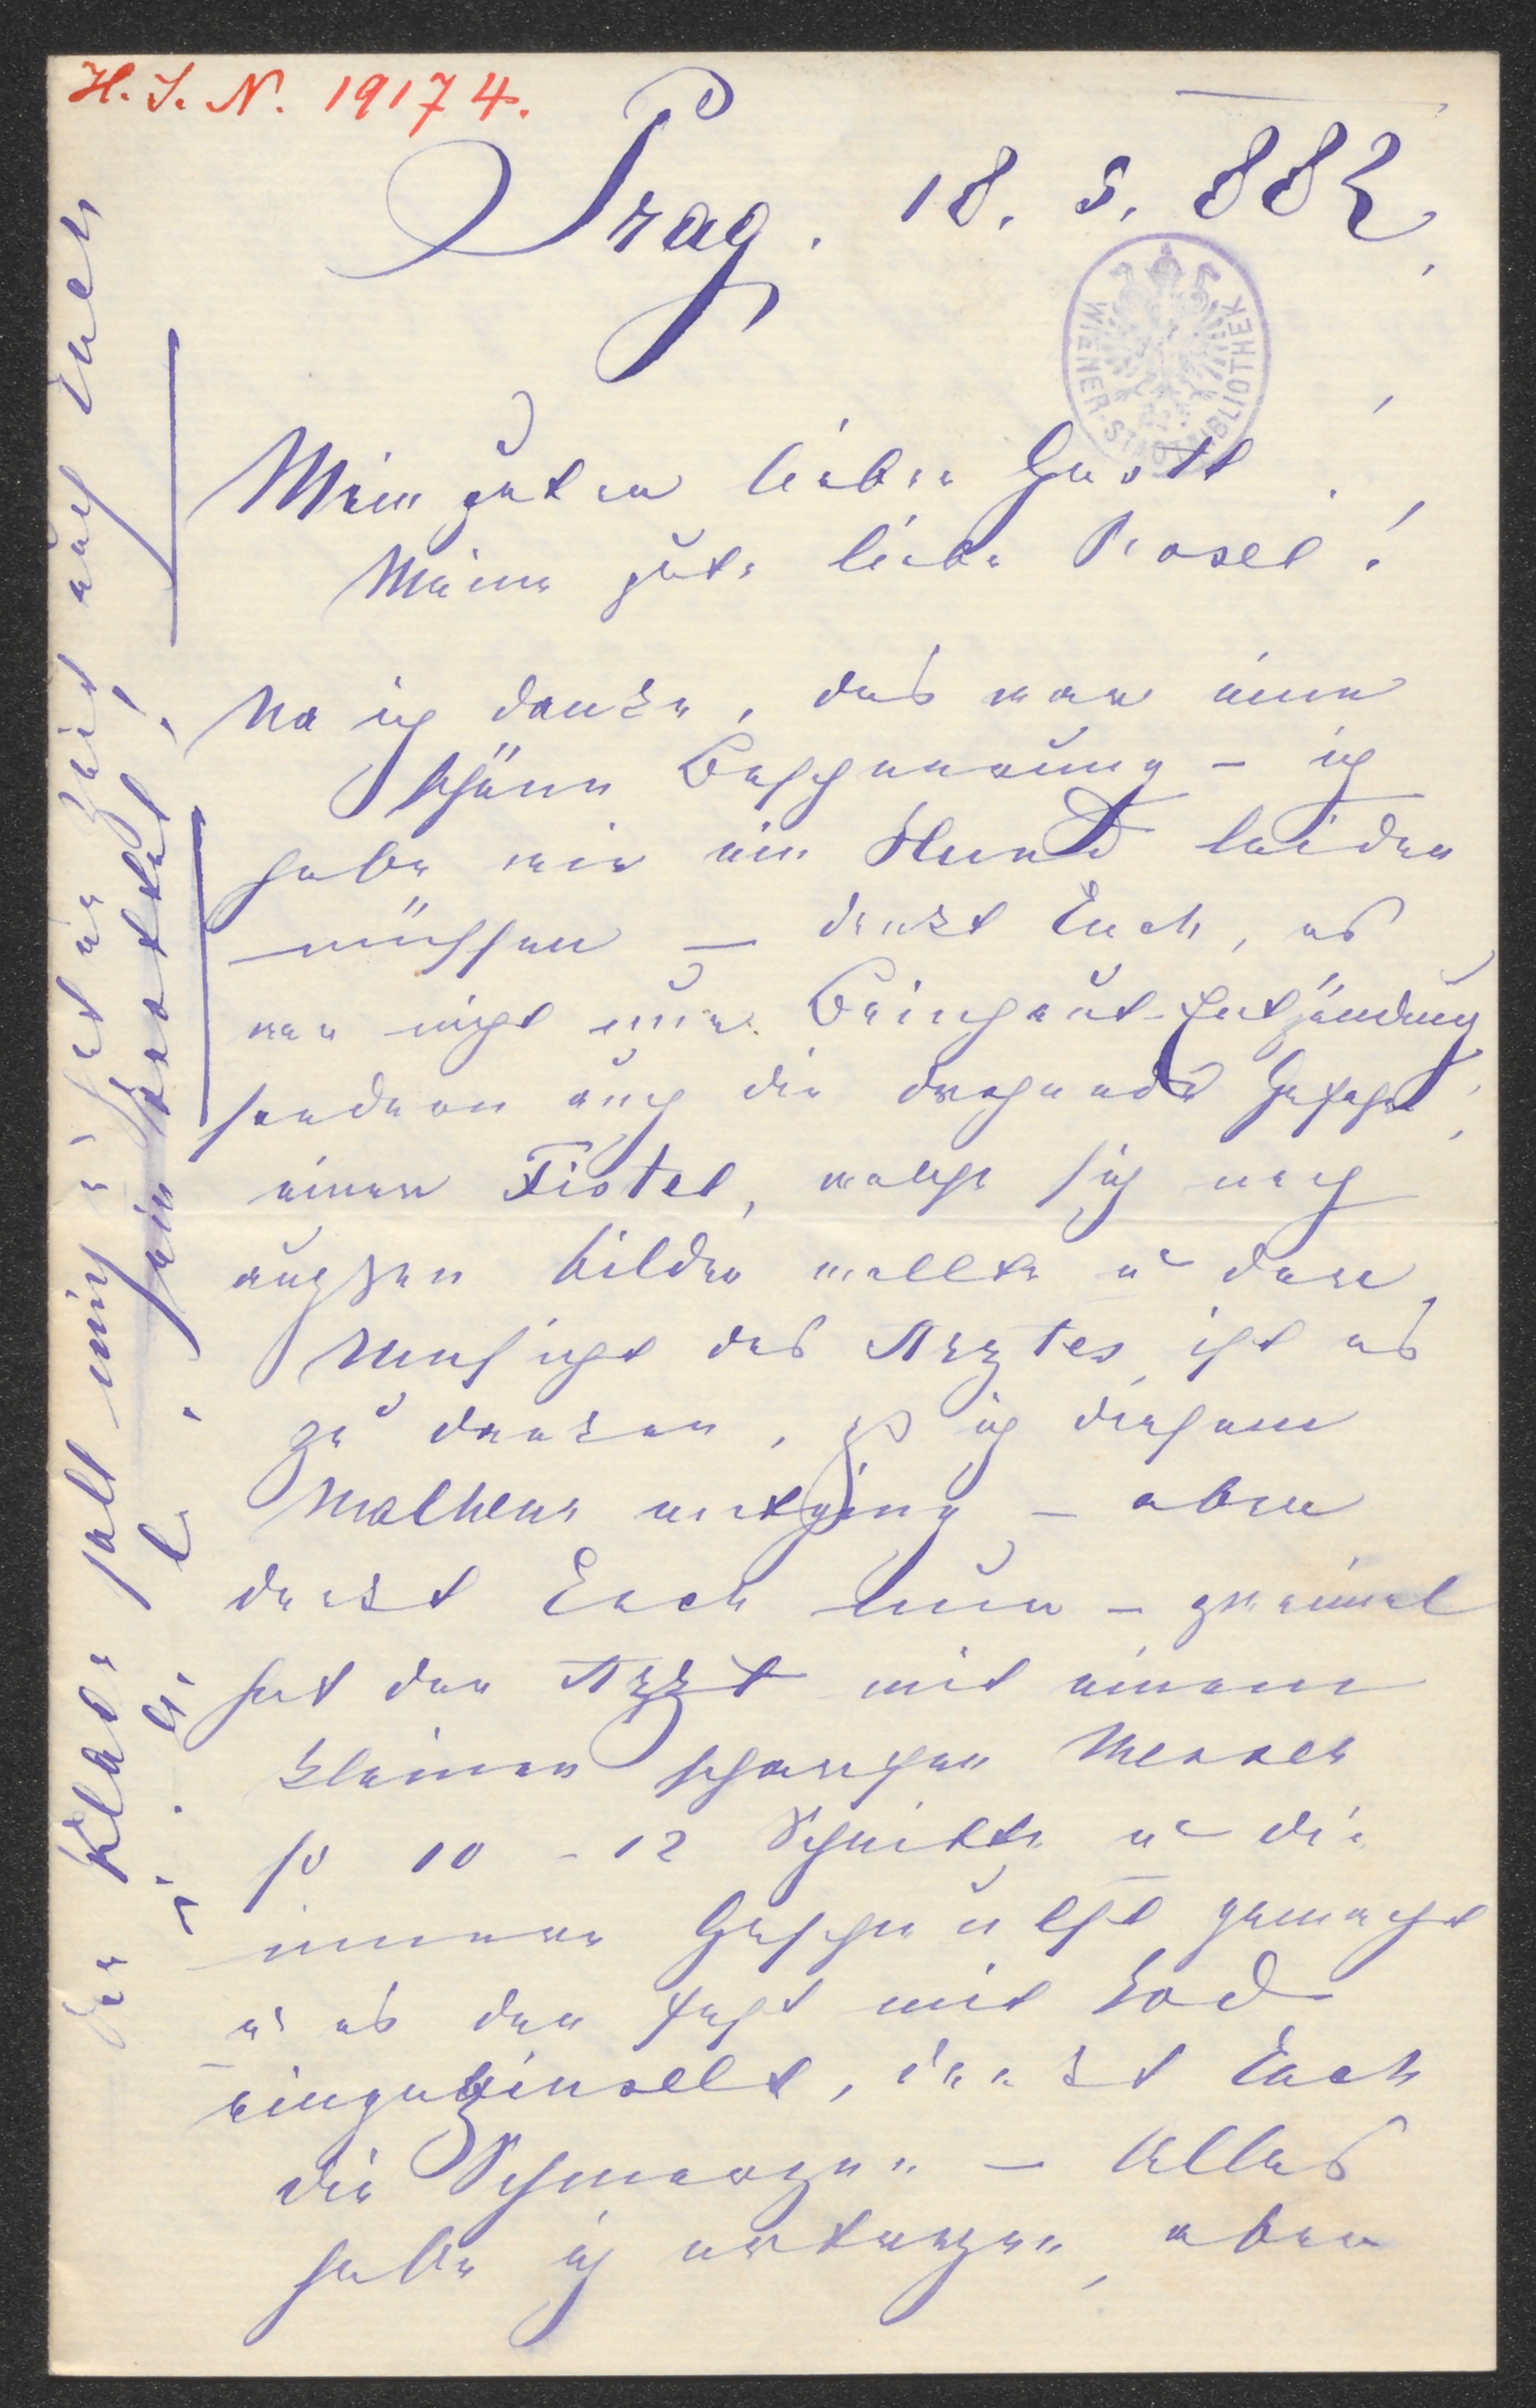 H. I. N. 19174.
Prag. 18. 5. 882.
WIENER STADTBIBLIOTHEK
Mein guter lieber Gustl!
Meine gute liebe Rosel!
Na ich danke, das war eine
schöne Bescheerung – ich
habe wie ein Hund leiden
müssen – denkt Euch, es
war nicht nur Beinhaut-Entzündung
sondern auch die drohende Gefahr
einer Fistel, welche sich nach
außen bilden wollte u der
Umsicht des Arztes ist es
zu danken, daß ich diesem
Malheur entging – aber
denkt Euch nur – zweimal
hat der Arzt mit einem
kleinen scharfen Messer
so 10 – 12 Schnitte in die
innere Geschwulst gemacht
u es dan fest mit Iod
eingepinselt, denkt Euch
die Schmerzen – Alles
habe ich ertragen, aber